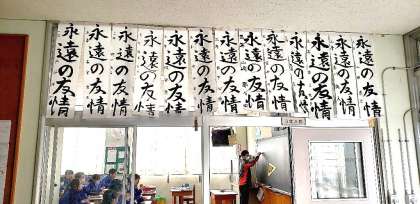 永遠の友情
永遠の友情
永遠の友情
永遠の友情
永遠の友情
永遠の友情
永遠の友情
永遠の友情
永遠の友情
永遠の友情
永遠の友情
永遠の友情
永遠の友情